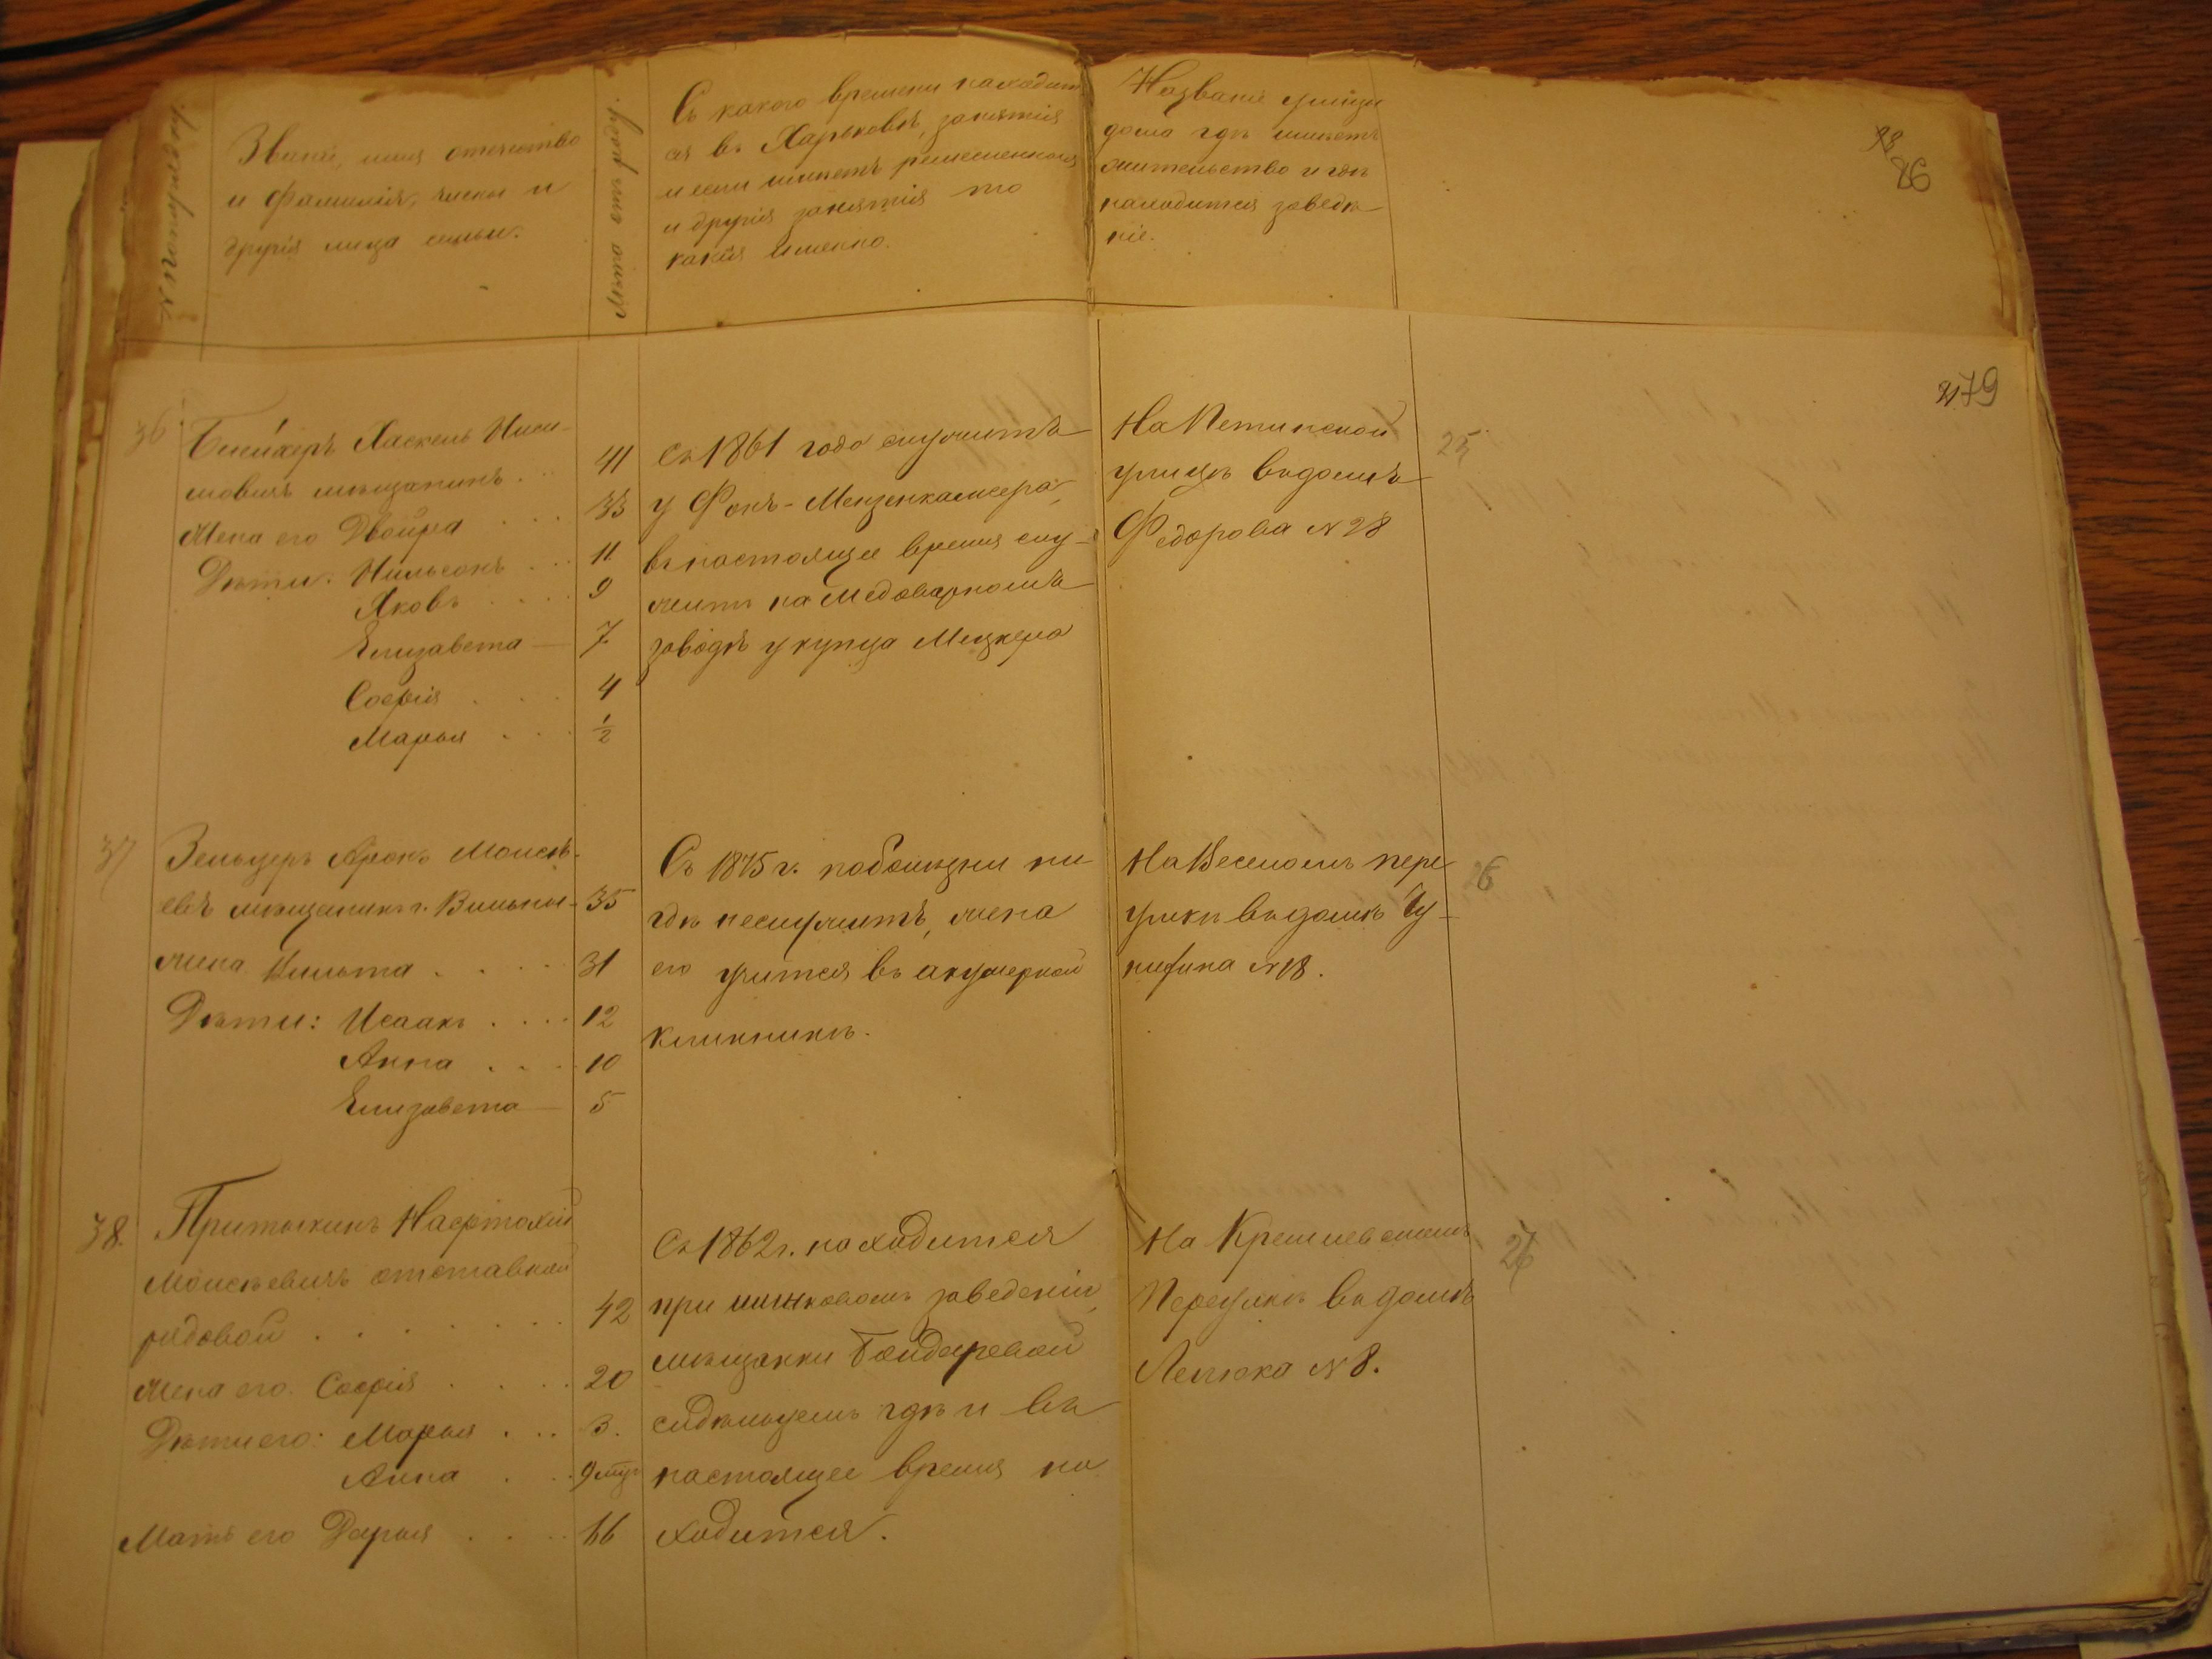 № по порядку.
Званіе, имя отчество
и фамилія, жены и
другія лица семьи.
Лѣта отъ роду.
Съ какого времени находит
ся въ Харьковѣ, занятія
и если имѣетъ ремесленныя
и другія занятія то
какія именно.
Названіе улицы
дома гдѣ имѣетъ
жительство и гдѣ
находится заведе-
ніе.
86
179
36
Хаскель
мовичъ мѣщанинъ
41
Жена его Двойра
33
Дѣти:
11
Яковъ
9
Елизавета
7
Софія
4
Марья
1/2
Съ 1861 года служитъ
у Фонъ-
въ настоящее время слу-
житъ на медоваренномъ
заводѣ у купца Мецкера
На Петинской
улицѣ въ домѣ
Федорова № 28
25
37
Зельцеръ Аронъ Моисѣ-
евъ мѣщанинъ г. Вильны
35
жена
31
Дѣти: Исаакъ
12
Анна
10
Елизавета
5
Съ 1875 г. по болѣзни ни
гдѣ неслужитъ, жена
его учится въ акушерной
клиникѣ.
На Веселомъ пере
улкѣ въ домѣ
№ 18.
26
38.
Притыкинъ Нафтолій
Моисѣевичъ отставной
рядовой
42
жена его Софія
20
Дѣти его: Марья
3.
Анна
9 мѣс
Мать его Дарья
66
Съ 1862 г. находится
при шинковомъ заведеніи
мѣщанки Бондаревой
сидѣльцемъ гдѣ и въ
настоящее время на
ходится.
На
Переулкѣ въ домѣ
№ 8.
27